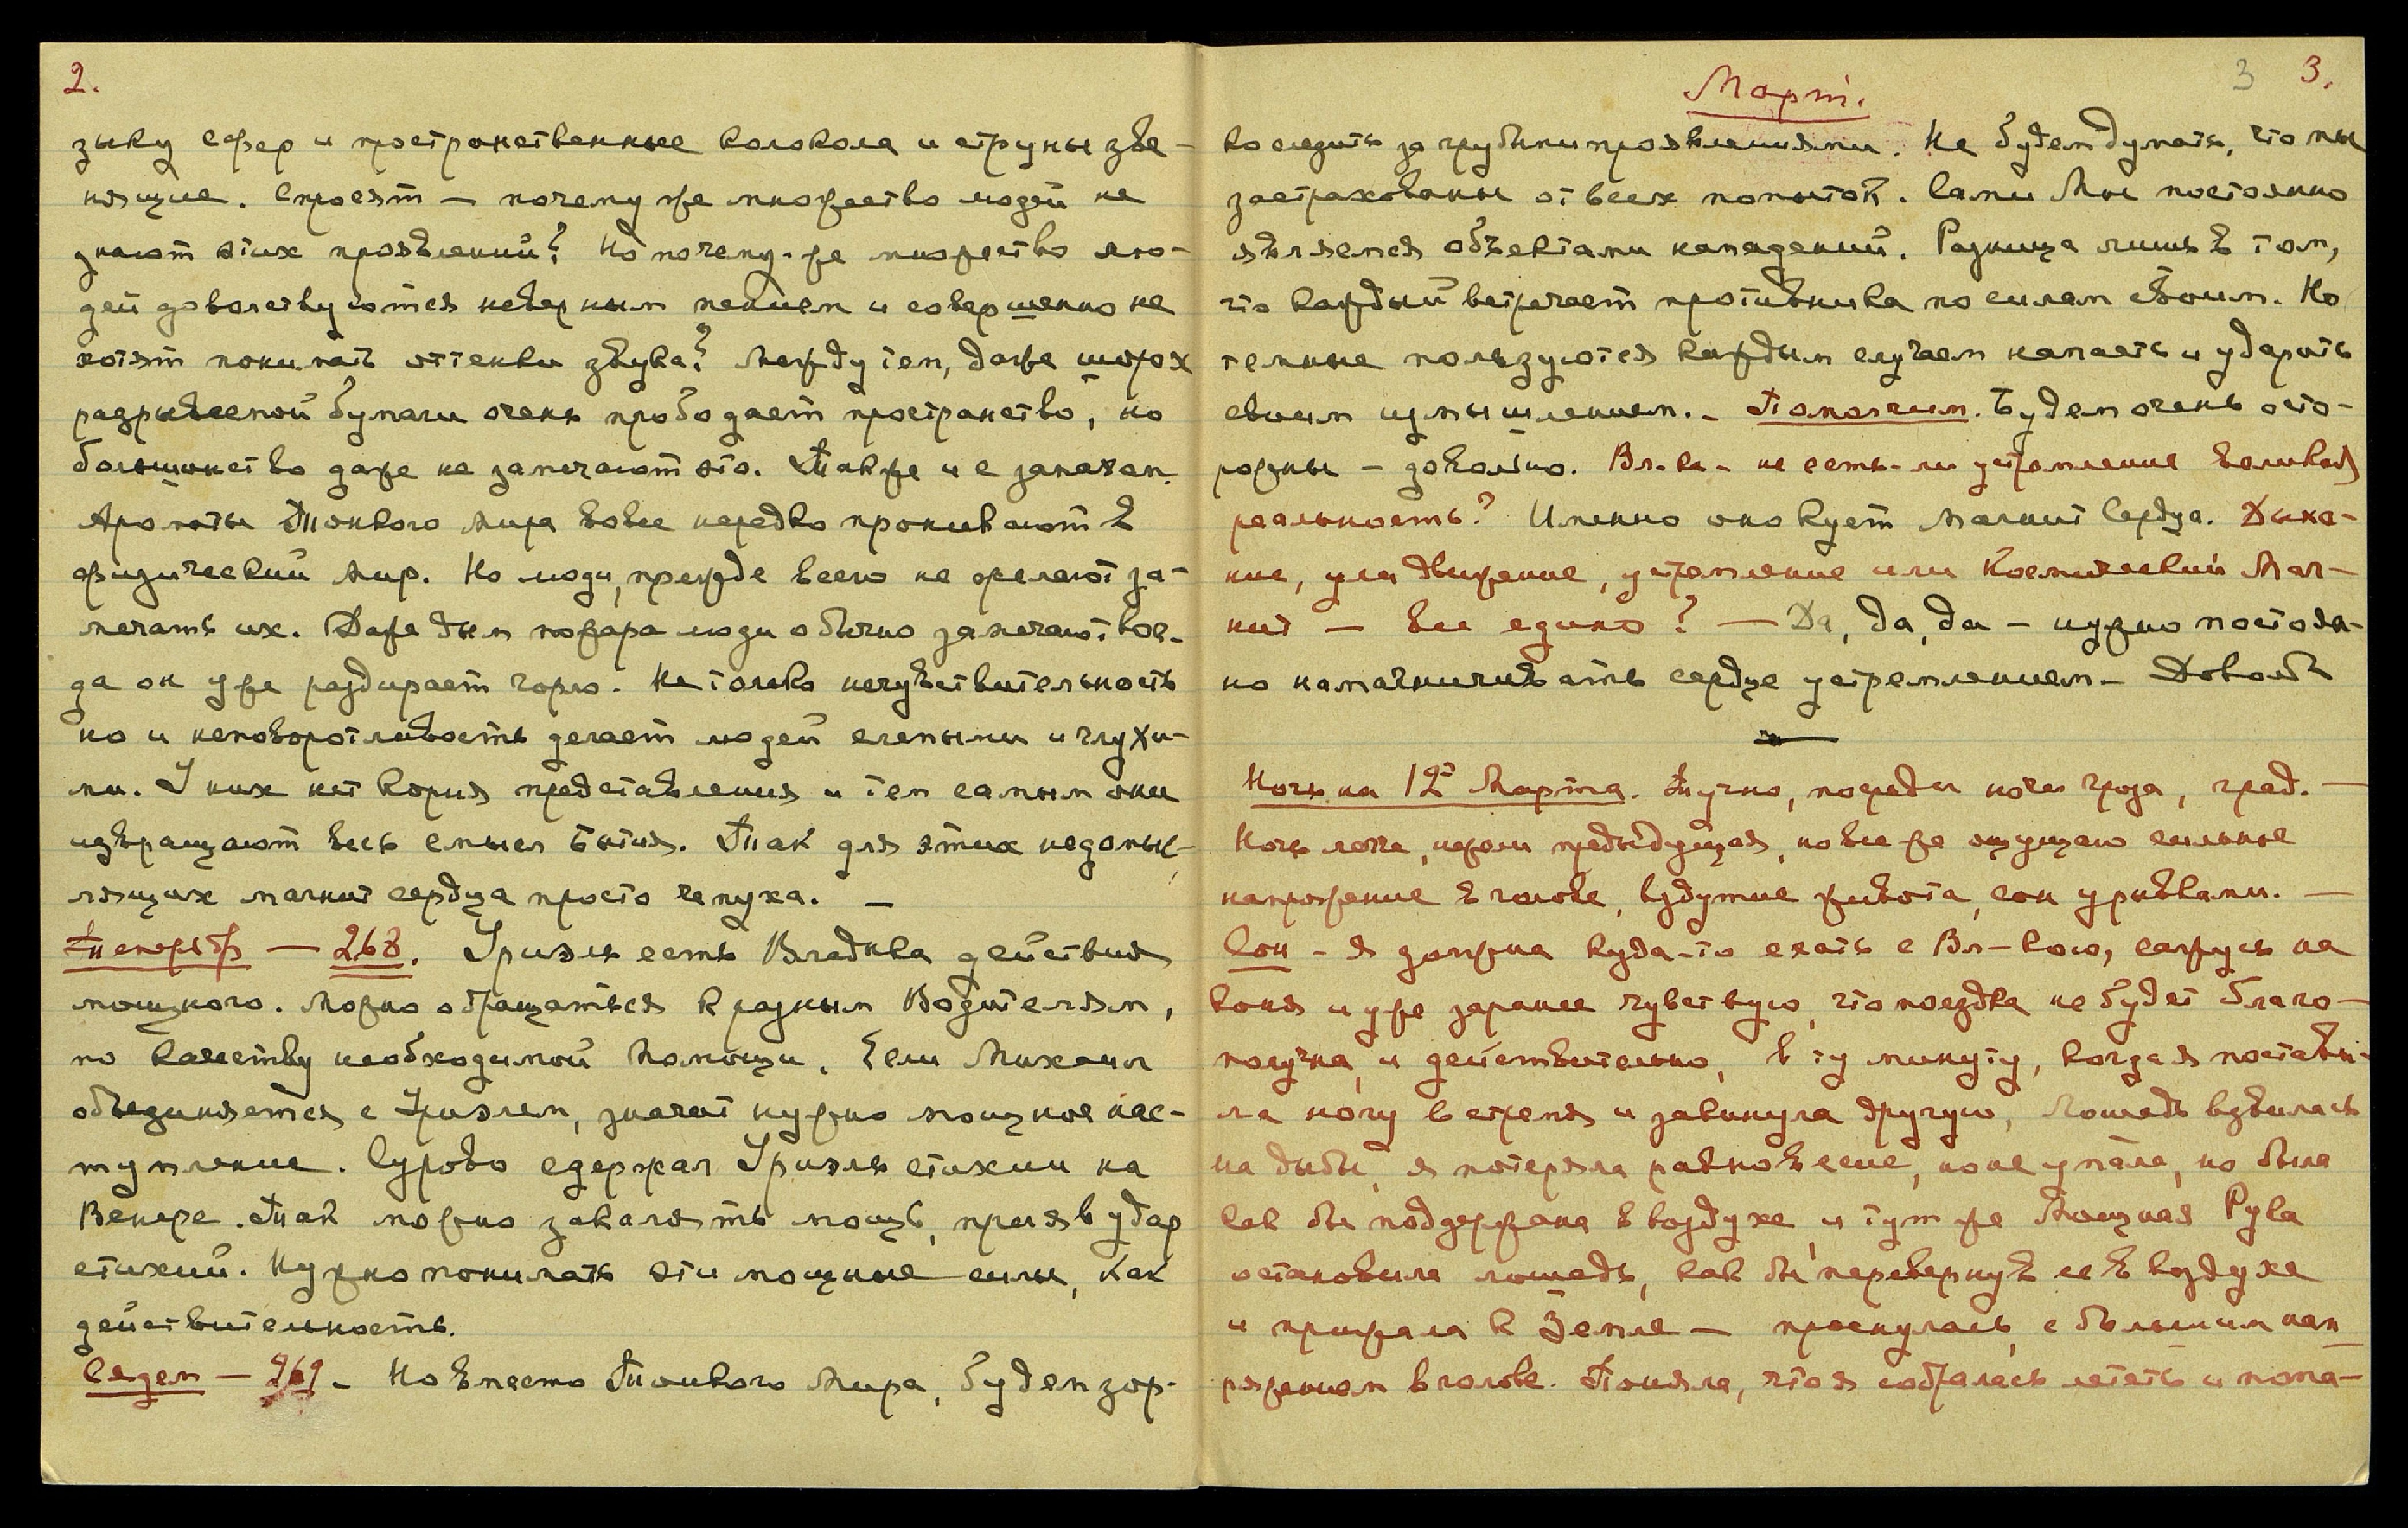 2.
зыку сфер и пространственные колокола и струны зве-
нящие. Спросят — почему же множество людей не
знают этих проявлений? Но почему-же множество лю-
дей довольствуются неверным пением и совершенно не
хотят понимать оттенки звука? Между тем, даже шорох
разрываемой бумаги очень прободает пространство, но
большинство даже не замечают это. Также и с запахам.
Ароматы Тонкого Мира вовсе нередко проникают в
физический мир. Но люди, прежде всего не желают за-
мечать их. Даже дым пожара люди обычно замечают, ког-
да он уже раздирает горло. Не только нечувствительность
но и неповоротливость делает людей слепыми и глухи-
ми. У них нет корня представления и тем самым они
извращают весь смысл Бытия. Так для этих недомыс-
лящих магнит сердца просто чепуха. —
— 268. Уриэль есть Владыка действия
мощного. Можно обращаться к разным Водителям,
по качеству необходимой помощи. Если Михаил
объединяется с Уриэлем, значит нужно мощное нас-
тупление. Сурово сдержал Уриэль стихии на
Венере. Так можно закалять мощь, приняв удар
стихий. Нужно понимать эти мощные силы, как
действительность.
Сядем — 269 – Но вместо Тонкого Мира, будем зор-
Март.
3 3.
ко следить за грубыми проявлениями. Не будем думать, что мы
застрахованы от всех попыток. Сами Мы постоянно
являемся объектами нападений. Разница лишь в том,
что каждый встречает противника по силам своим. Но
темные пользуются каждым случаем напасть и ударить
своим измышлением. – Помолчим. Будем очень осто-
рожны – довольно. Вл-ка – не есть-ли устремление великая
реальность? Именно оно кует магнит Сердца. Дыха-
ние, или движение, устремление или Космический Маг-
нит — все едино? — Да, да, да – нужно постоян-
но намагничивать сердце устремлением – Довольно
Ночь на 12е Марта. Тучно, посреди ночи гроза, град. —
Ночь легче, нежели предыдущая, но все же ощущаю сильное
напряжение в голове, вздутие живота, сон урывками. —
Сон – я должна куда-то ехать с Вл-кою, сажусь на
коня и уже заранее чувствую, что поездка не будет благо-
получна, и действительно, в ту минуту, когда я постави-
ла ногу в стремя и закинула другую, лошадь взвилась
на дыбы, я потеряла равновесие, но не упала, но была
как бы поддержана в воздухе, и тут же Мощная Рука
остановила лошадь, как бы перевернув ее в воздухе
и прижала к Земле — проснулась, с большим нап
ряжением в голове. Поняла, что я собралась летать и пома-